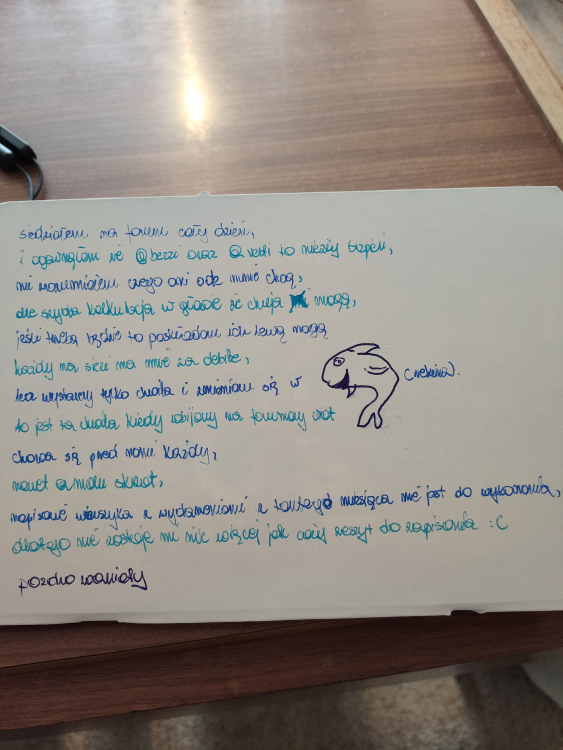 siedziałem na forum cały dzień,
i ogarnąłem że @bezzi oraz @vetti to niezły trzpień,
nie rozumiałem czego oni ode mnie chcą,
ale szybka kalkulacja w głowie że chuja mi mogą,
jeśli trzeba będzie to poskładam ich lewą nogą
każdy na sieci ma mnie za debila,
lecz wystarczy tylko chwila i zmieniam się w (rekina).
to jest ta chwila kiedy wbijamy na forumowy czat
chowa się przed nami każdy,
nawet skrót,
napisanie wierszyka z wydarzeniami z tamtego miesiąca nie jest do wykonania,
dlatego nie zostaje mi nic więcej jak cały zeszyt do zapisania :C
pozdro wariaty